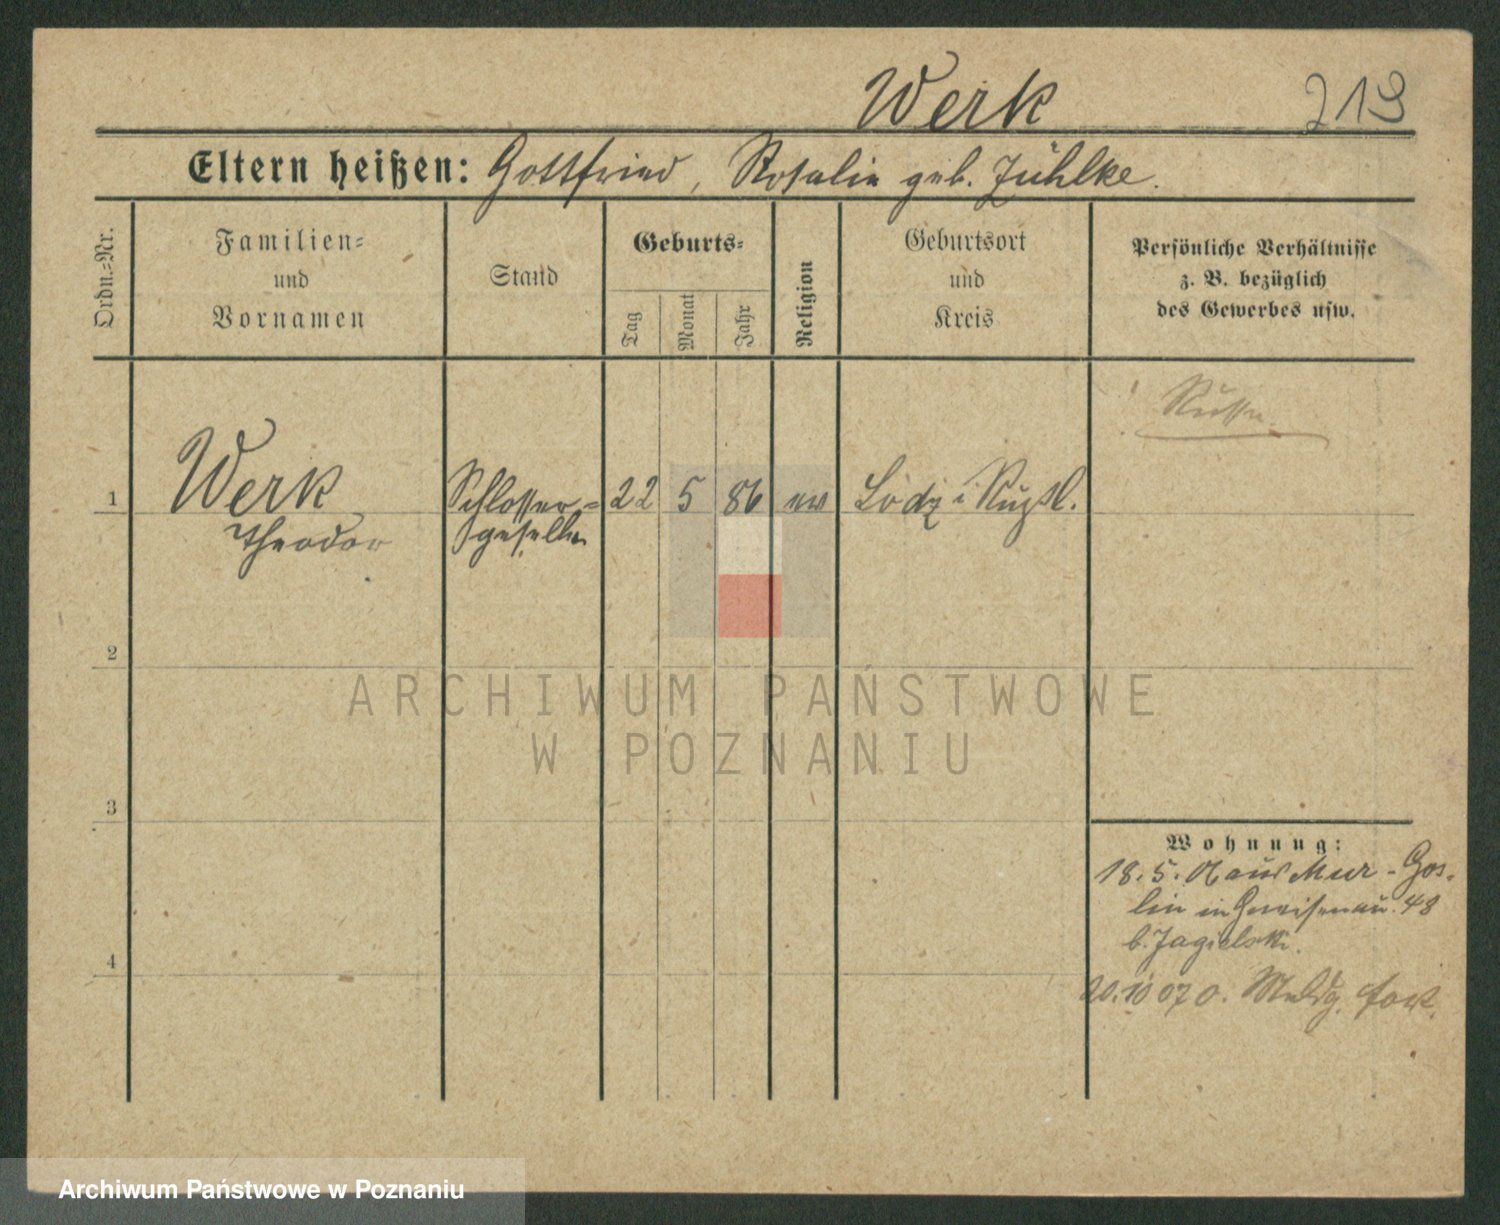 Werk 213
Eltern heißen: Gottfried, Rosalie geb. Zühlke.
Ordn.-Nr.
Familien-
und
Vornamen
Stand
Geburts-
Tag
Monat
Jahr
Religion
Geburtsort
und
Kreis
Persönliche Verhältnisse
z. B. bezüglich
des Gewerbes usw.
Russe
1 Werk Schlosser- 22 5 86 ev Lodz i Rußl.
Theodor geselle
2
ARCHIWUM PAŃSTWOWE
W POZNANIU
3
Wohnung:
18. 5. 07 aus Mur-Gos-
lin in Gneisenau. 48
b. Jagielski.
4
20. 10 07 o. Meldg. fort.
Archiwum Państwowe w Poznaniu